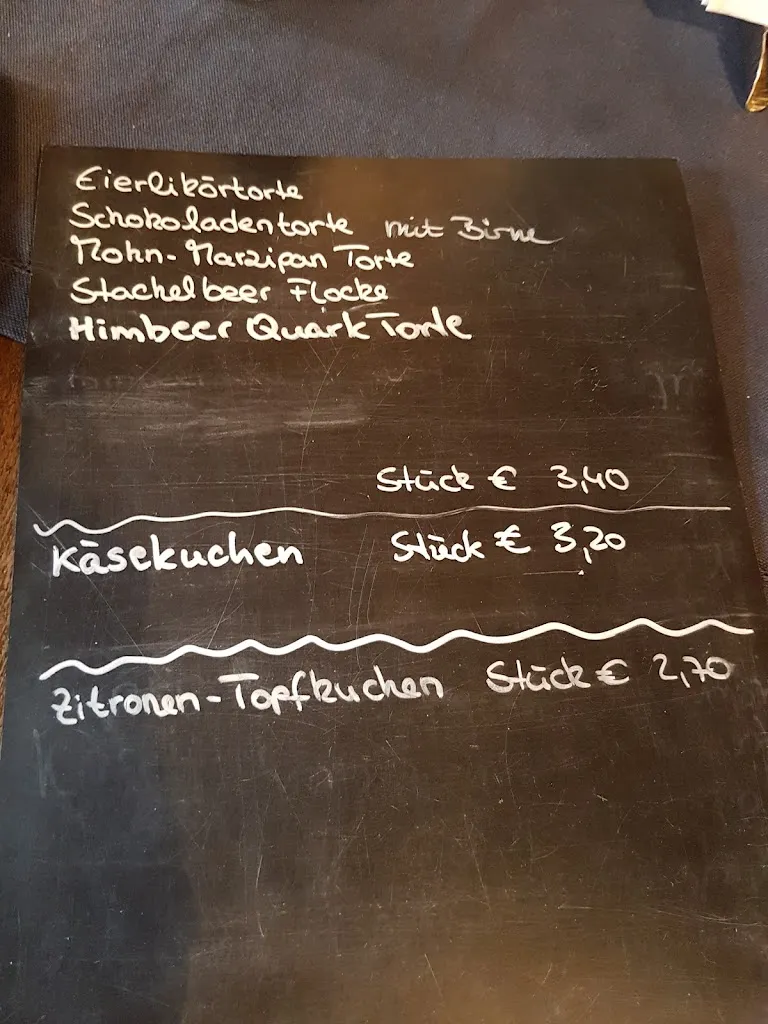 Eierlikörtorte
Schokoladentorte mit Birne
Mohn-Marzipan Torte
Stachelbeer Flocke
Himbeer Quark Torte
Stück € 3,40
Käsekuchen Stück € 3,20
Zitronen-Topfkuchen Stück € 2,70